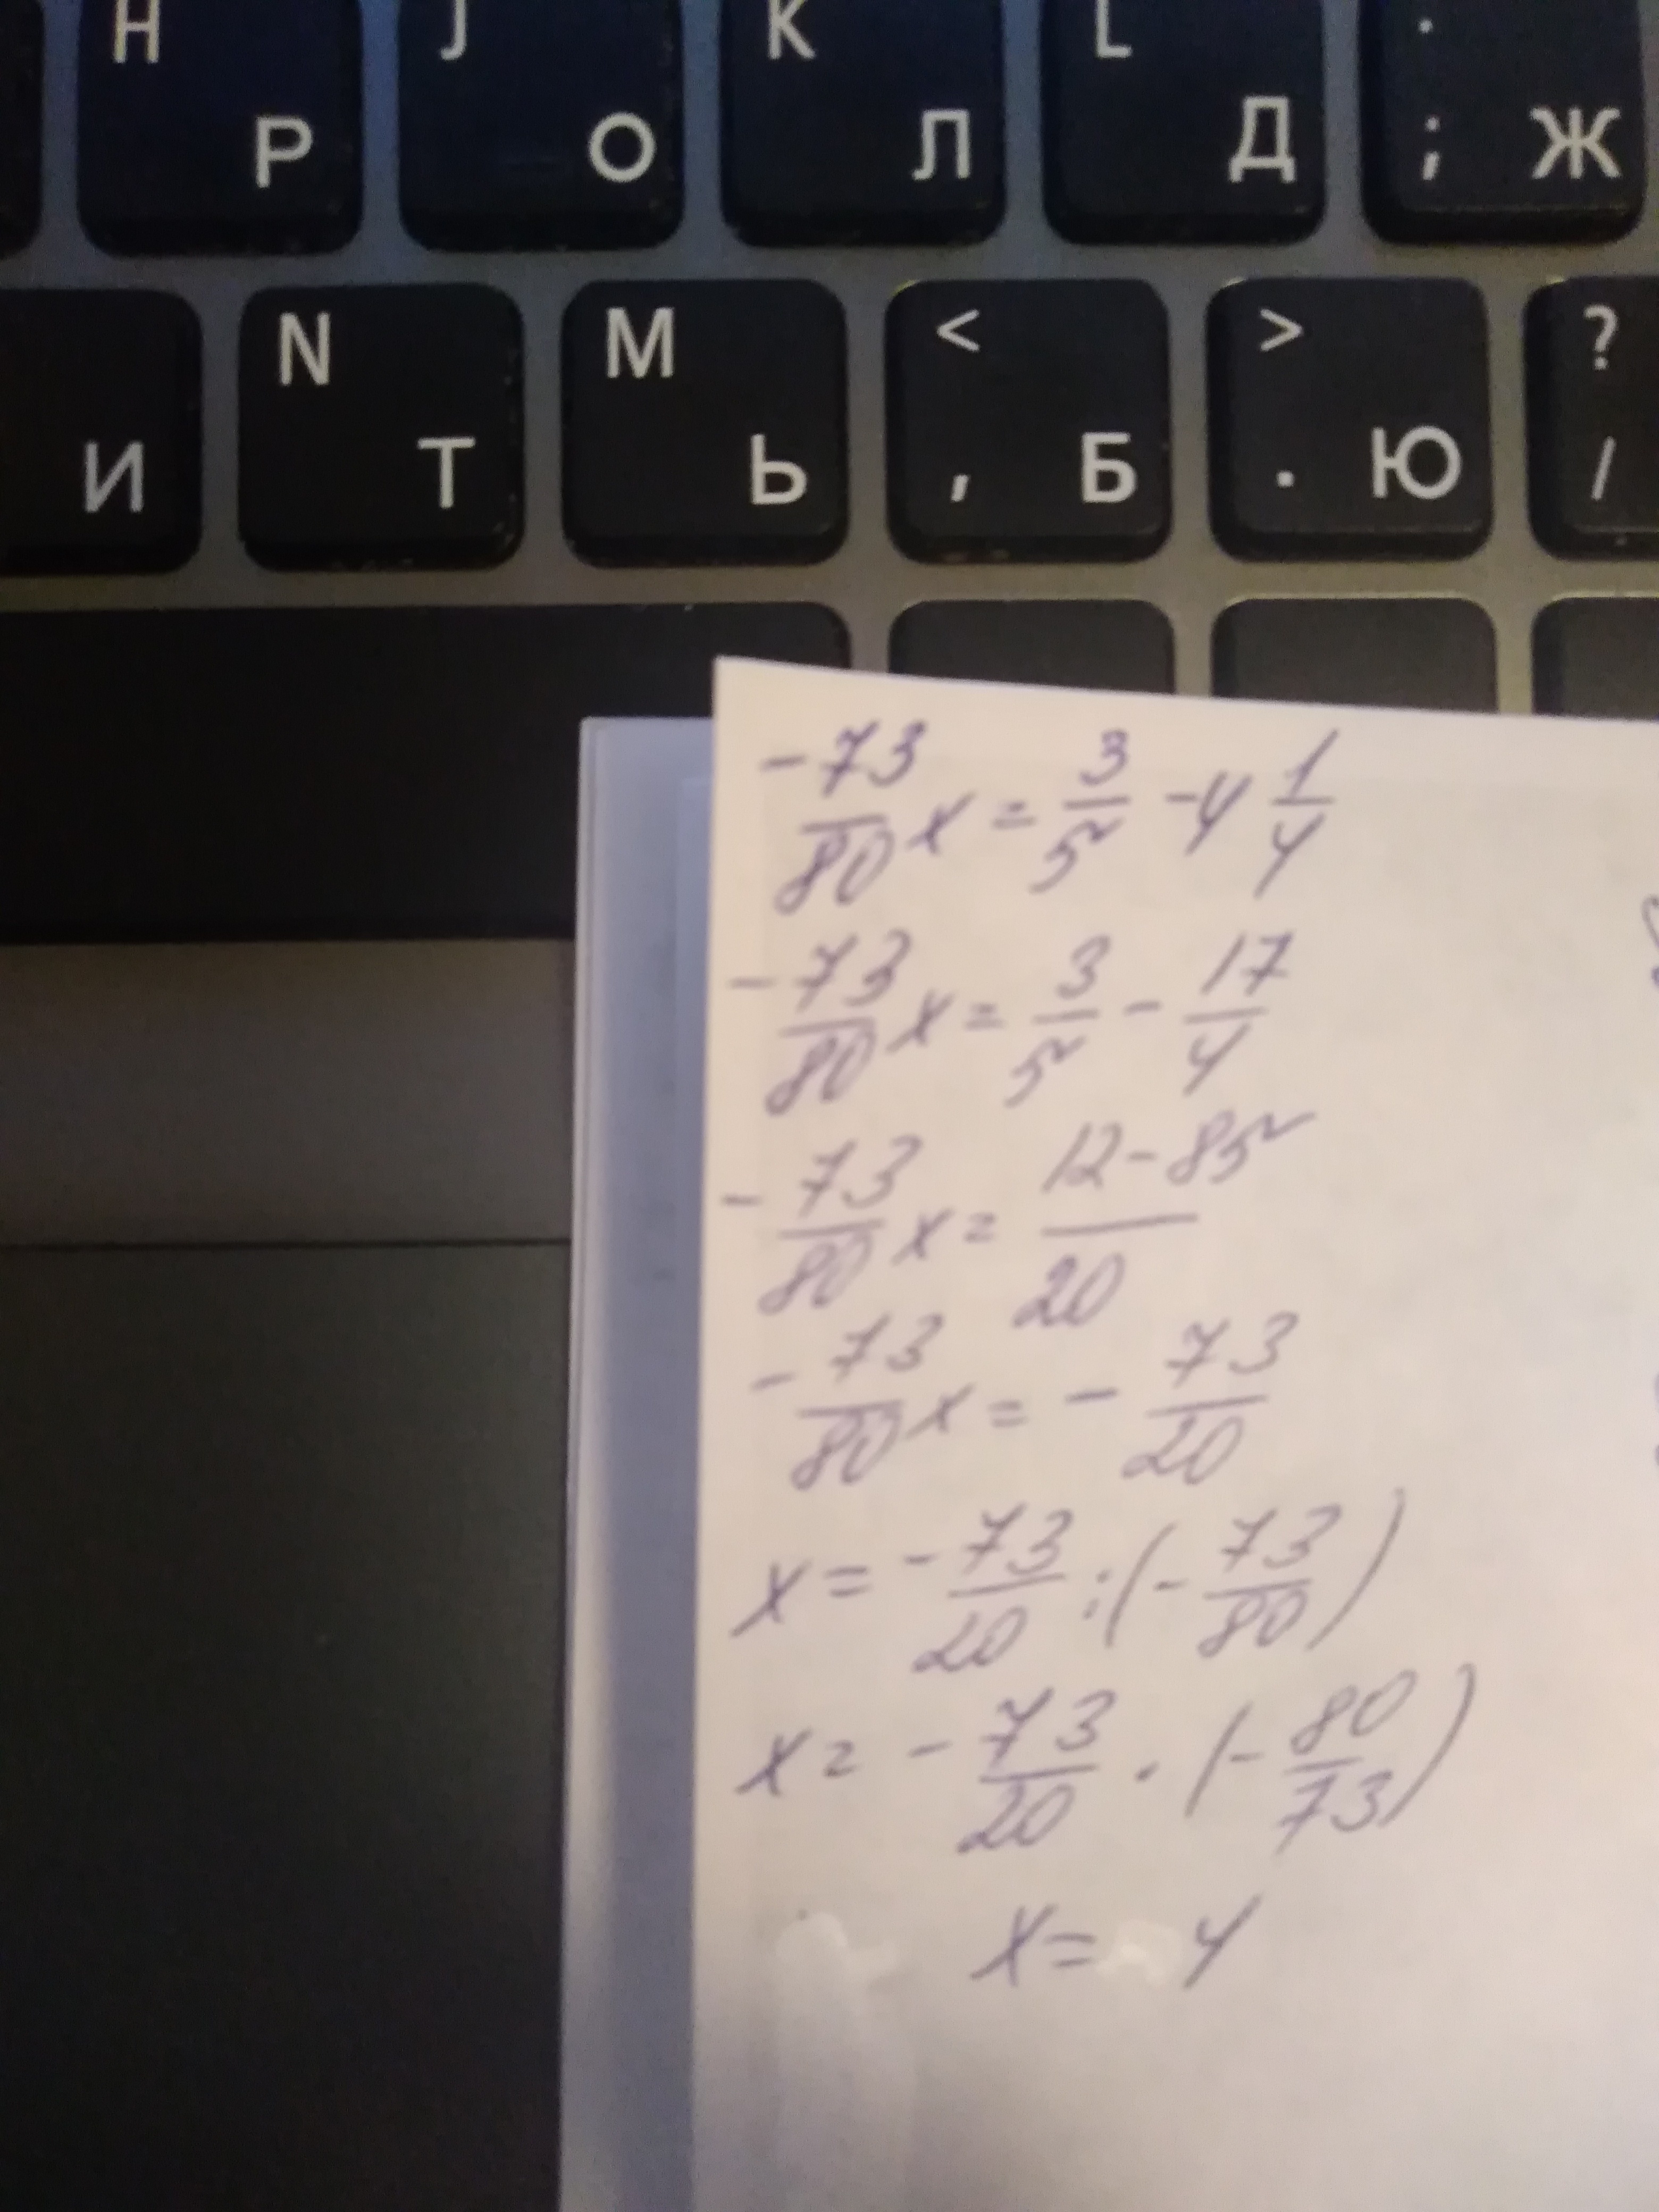 H Р J О K Л L Д : ; Ж
И N Т M Ь < , Б > . Ю ? /
-73/80 x = 3/5 - 4 1/4
- 73/80 x = 3/5 - 17/4
- 73/80 x = 12-85/20
- 73/80 x = - 73/20
x = - 73/20 : (- 73/80)
x = - 73/20 · (- 80/73)
x = 4